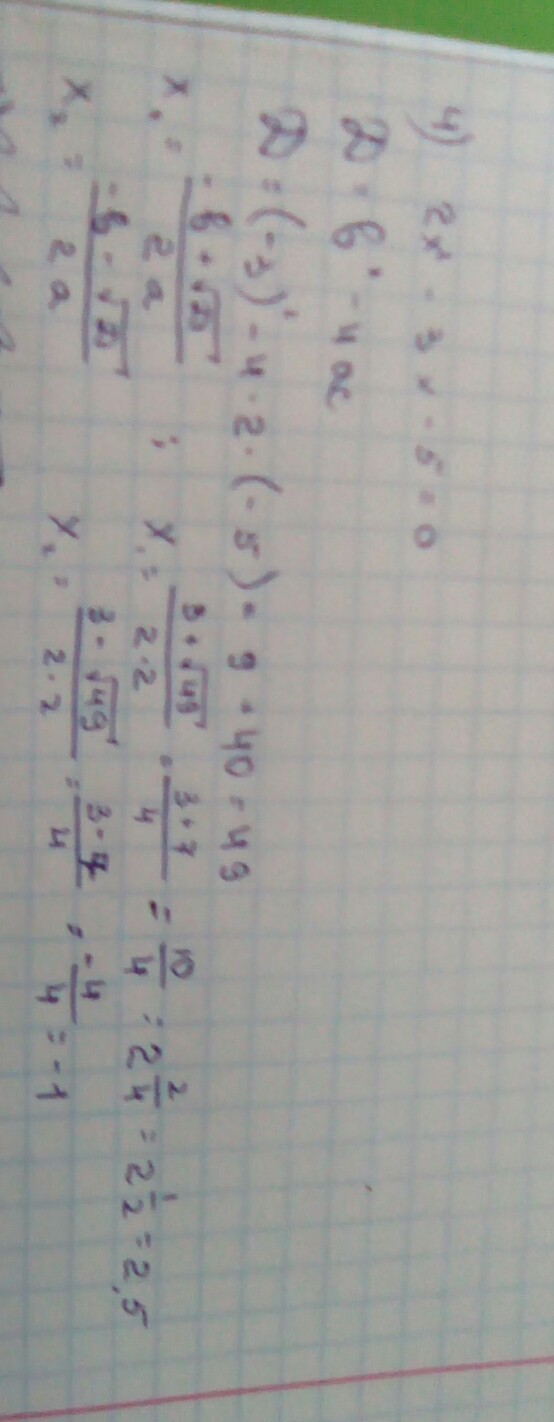 4) 2x² - 3x - 5 = 0
D = b² - 4ac
D = (-3)² - 4 · 2 · (-5) = 9 + 40 = 49
x₁ = (-b + √D) / 2a ; x₁ = (3 + √49) / 2·2 = (3 + 7) / 4 = 10/4 = 2 2/4 = 2 1/2 = 2,5
x₂ = (-b - √D) / 2a x₂ = (3 - √49) / 2·2 = (3 - 7) / 4 = -4/4 = -1